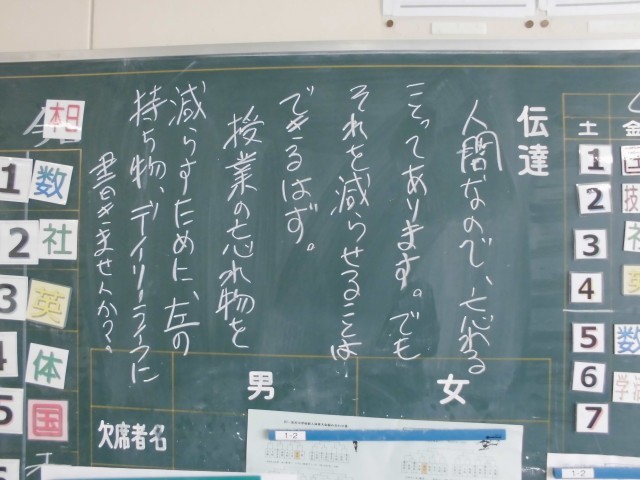 伝達
人間なので、忘れる
ことってあります。でも
それを減らせることは
できるはず。
授業の忘れ物を
減らすために、左の
持ち物、デイリーライフに
書きませんか?
女
男
欠席者名
1-2
本日
1 数
2 社
3 英
4 体
5 国
土
金
1 国
2 技
3 社
4 英
5 数
6 学活
7
1-2